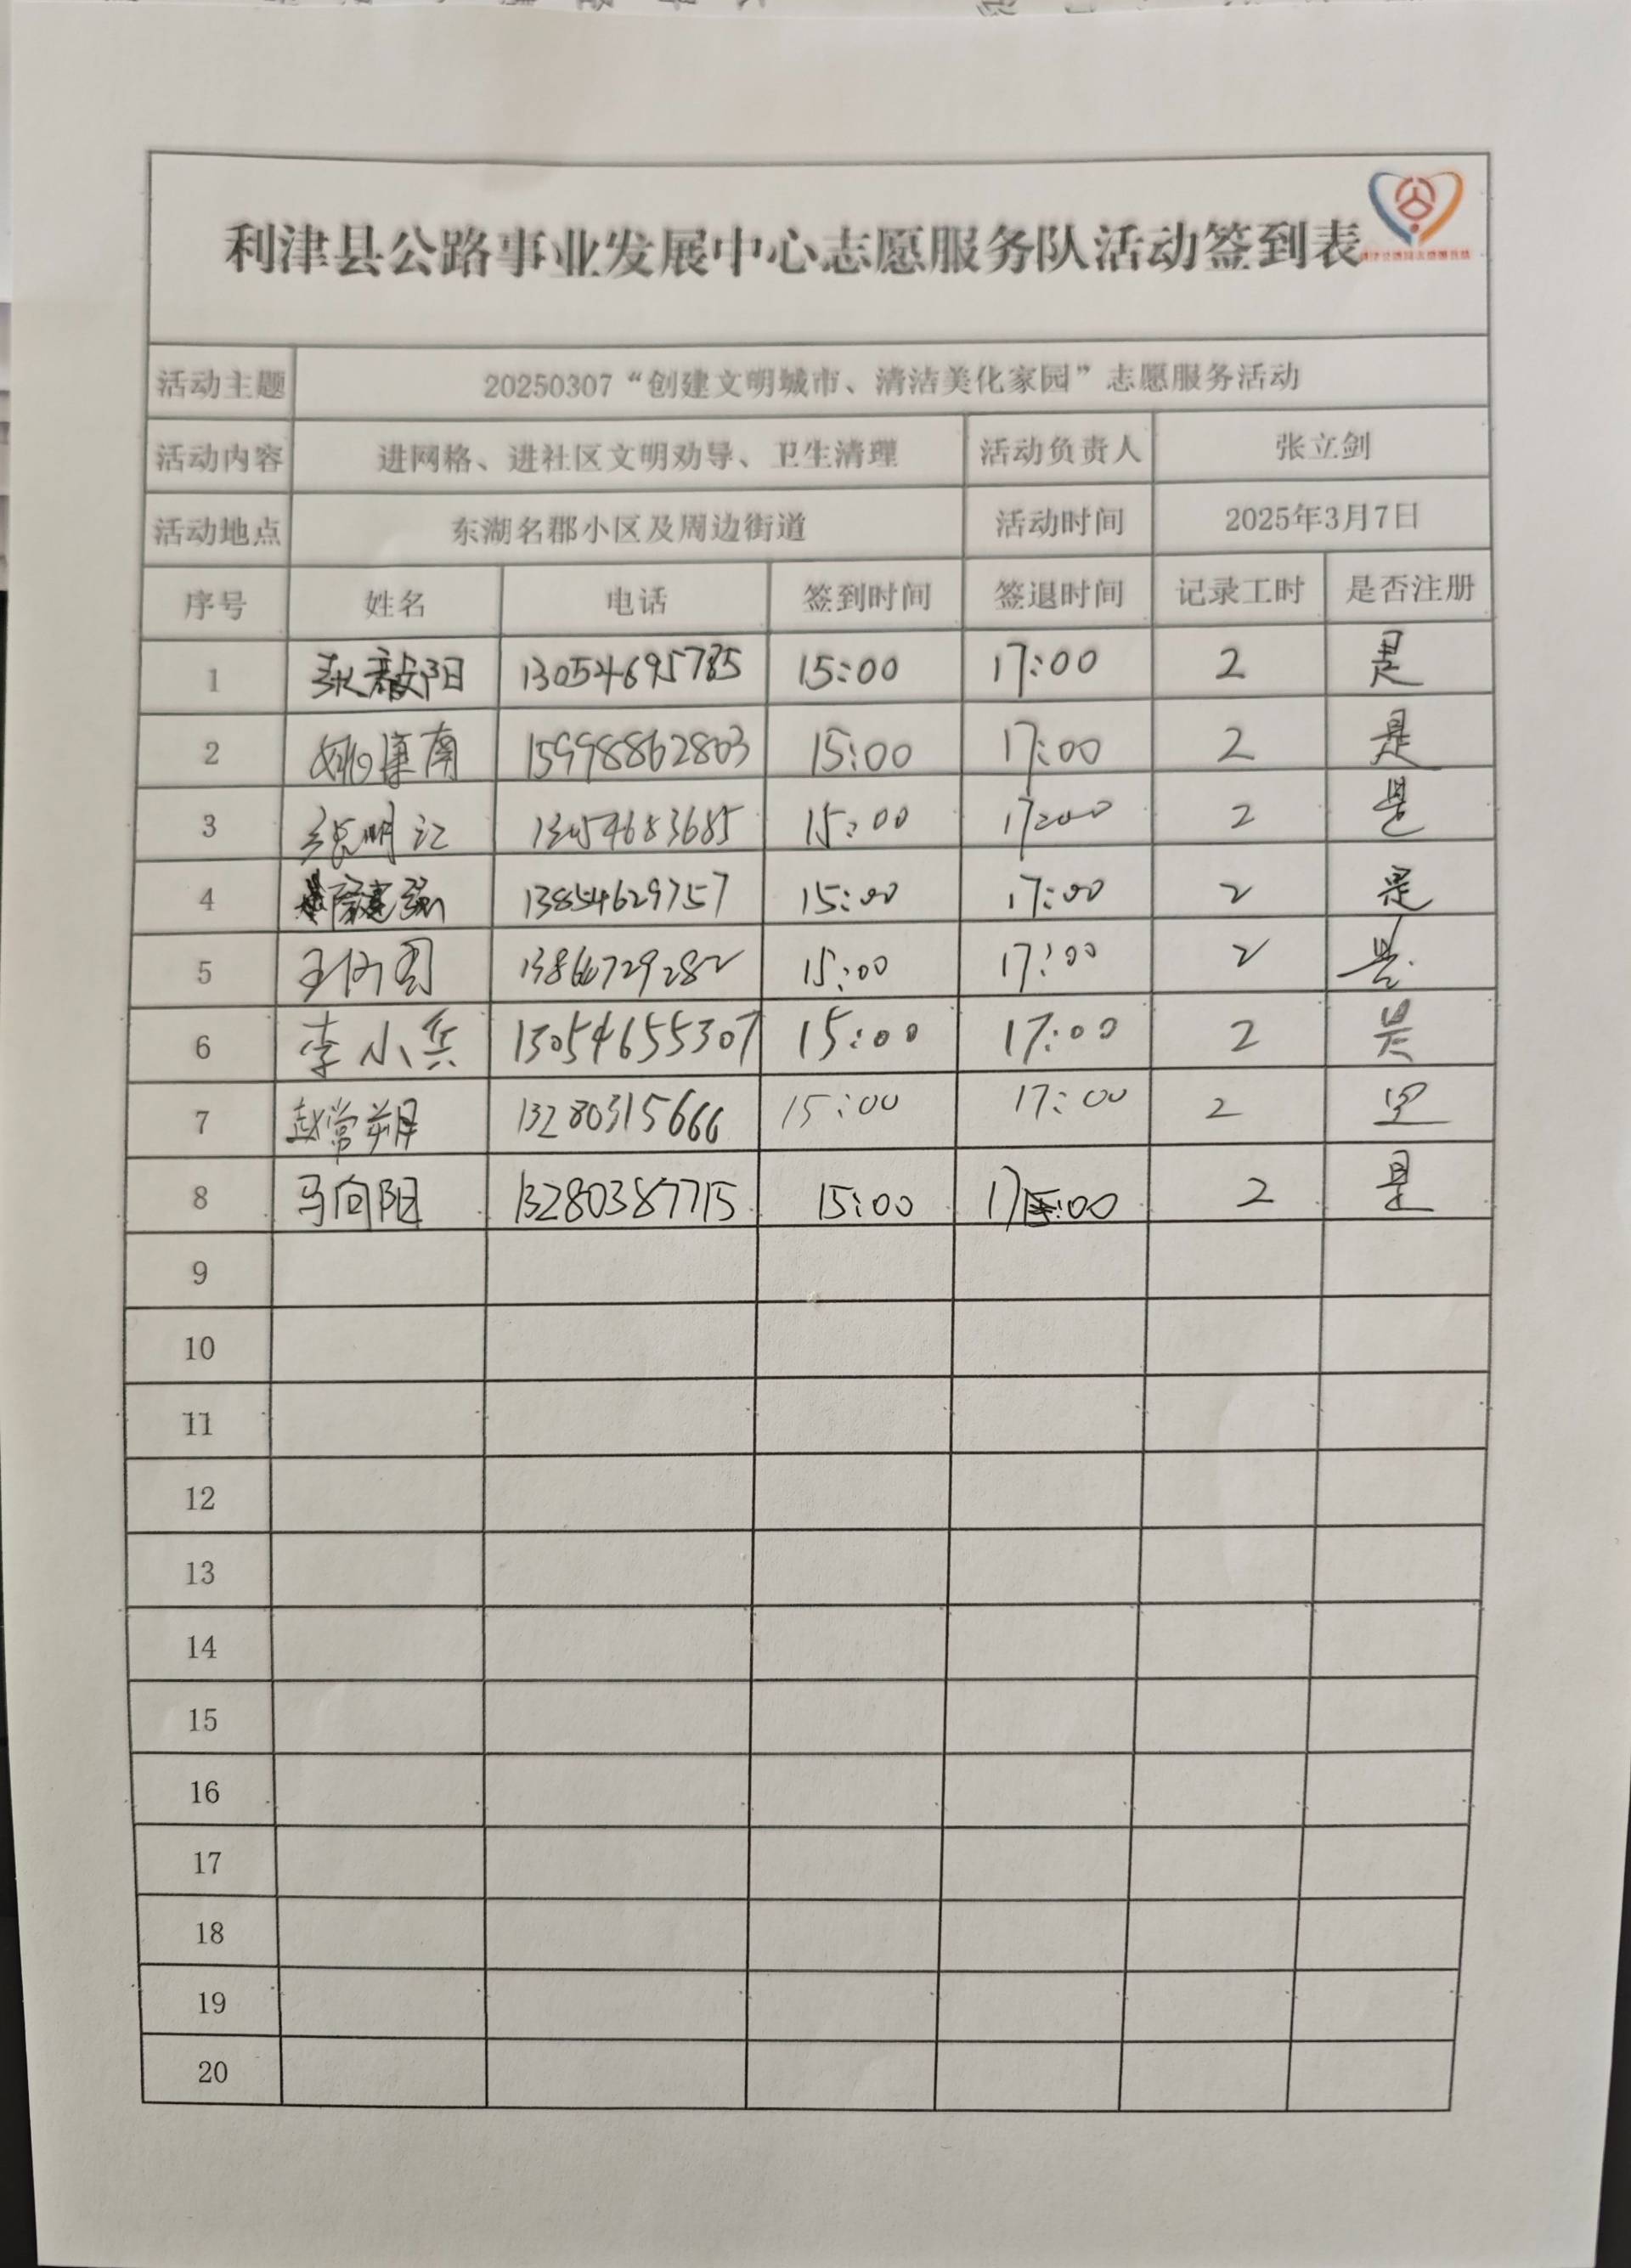 利津县公路事业发展中心志愿服务队活动签到表
活动主题 20250307“创建文明城市、清洁美化家园”志愿服务活动
活动内容 进网格、进社区文明劝导、卫生清理 活动负责人 张立剑
活动地点 东湖名郡小区及周边街道 活动时间 2025年3月7日
序号 姓名 电话 签到时间 签退时间 记录工时 是否注册
1 13054695785 15:00 17:00 2 是
2 姚康南 15998862803 15:00 17:00 2 是
3 张明江 13054683685 15:00 17:00 2 是
4 13854629757 15:00 17:00 2 是
5 15:00 17:00 2 是
6 李小兵 13054655307 15:00 17:00 2 是
7 赵常朔 13280315666 15:00 17:00 2 是
8 马向阳 13280387715 15:00 17:00 2 是
9
10
11
12
13
14
15
16
17
18
19
20